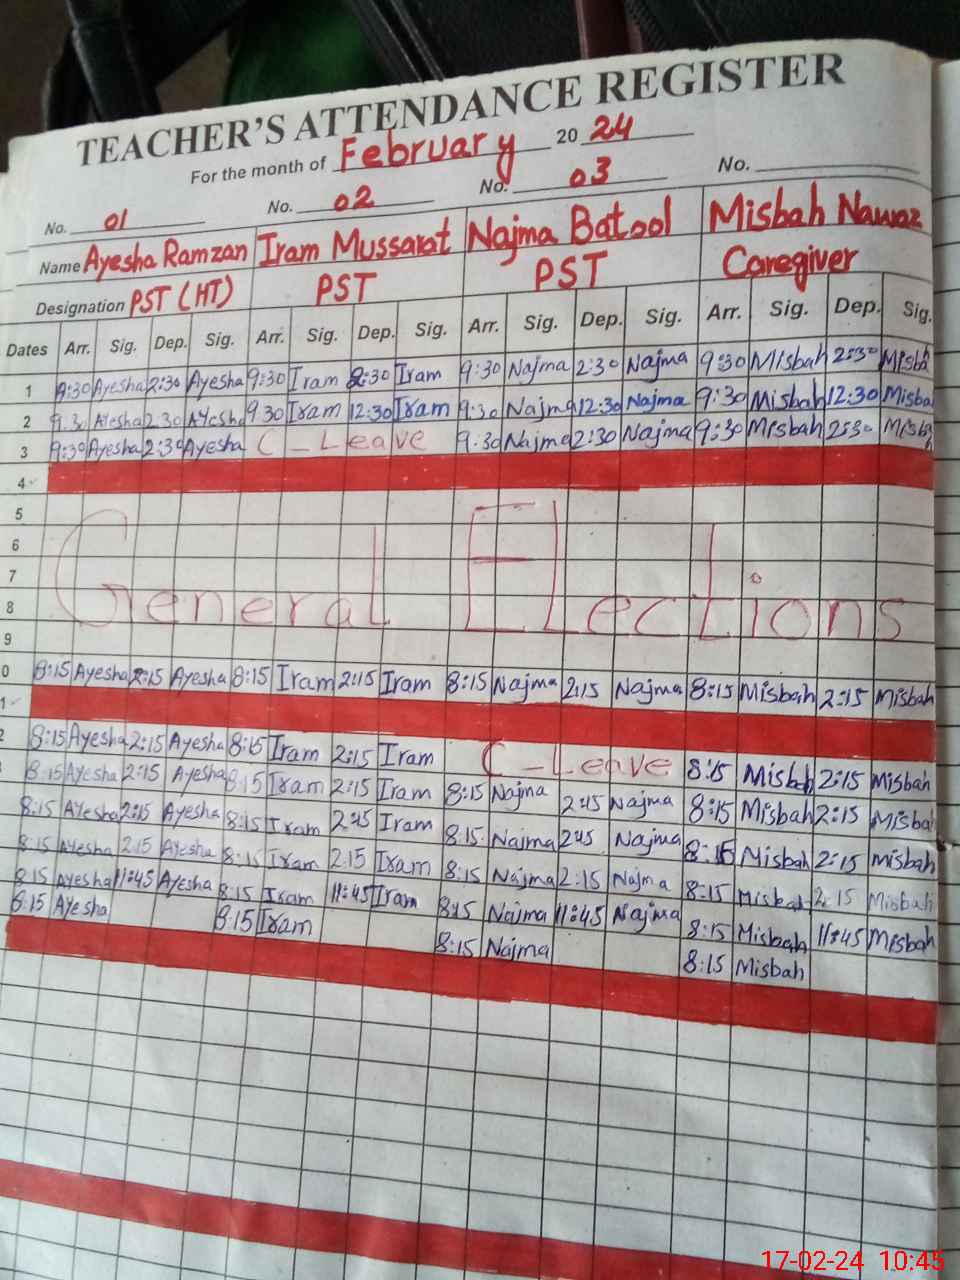 TEACHER'S ATTENDANCE REGISTER
For the month of February 20 24
No. 01 No. 02 No. 03 No.
Name Ayesha Ramzan Iram Mussarat Najma Batool Misbah Nawaz
Designation PST (HT) PST PST Caregiver
Dates Arr. Sig. Dep. Sig. Arr. Sig. Dep. Sig. Arr. Sig. Dep. Sig. Arr. Sig. Dep. Sig.
1 9:30 Ayesha 2:30 Ayesha 9:30 Iram 2:30 Iram 9:30 Najma 2:30 Najma 9:30 Misbah 2:30 Misba
2 9:30 Ayesha 2:30 Ayesha 9:30 Iram 12:30 Iram 9:30 Najma 12:30 Najma 9:30 Misbah 12:30 Misba
3 9:30 Ayesha 2:30 Ayesha C - Leave 9:30 Najma 2:30 Najma 9:30 Misbah 2:30 Misba
4
5
6
7
8 General Elections
9
0 8:15 Ayesha 2:15 Ayesha 8:15 Iram 2:15 Iram 8:15 Najma 2:15 Najma 8:15 Misbah 2:15 Misbah
1
2 8:15 Ayesha 2:15 Ayesha 8:15 Iram 2:15 Iram C - Leave 8:15 Misbah 2:15 Misbah
8:15 Ayesha 2:15 Ayesha 8:15 Iram 2:15 Iram 8:15 Najma 2:15 Najma 8:15 Misbah 2:15 Misba
8:15 Ayesha 2:15 Ayesha 8:15 Iram 2:15 Iram 8:15 Najma 2:15 Najma 8:15 Misbah 2:15 Misbah
8:15 Ayesha 2:15 Ayesha 8:15 Iram 2:15 Iram 8:15 Najma 2:15 Najma 8:15 Misbah 2:15 Misbah
8:15 Ayesha 11:45 Ayesha 8:15 Iram 11:45 Iram 8:15 Najma 11:45 Najma 8:15 Misbah 11:45 Misbah
8:15 Ayesha 8:15 Iram 8:15 Najma 8:15 Misbah
17-02-24 10:45